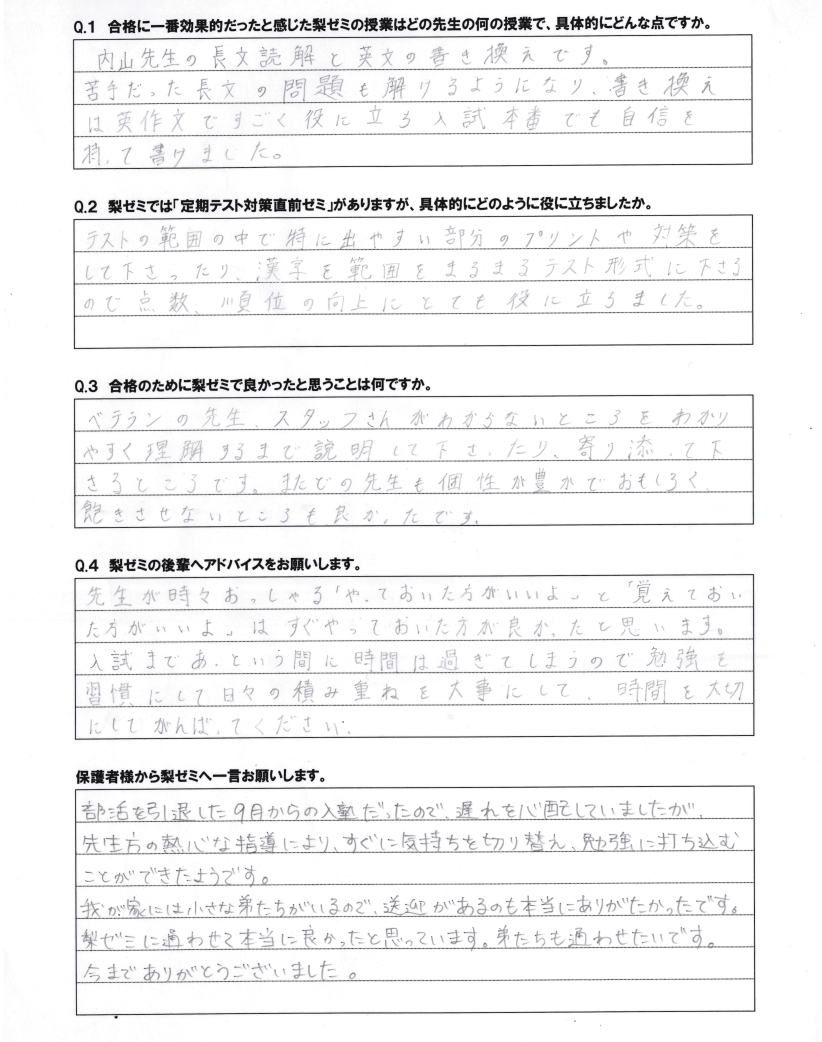 Q.1 合格に一番効果的だったと感じた梨ゼミの授業はどの先生の何の授業で、具体的にどんな点ですか。
内山先生の長文読解と英文の書き換えです。
苦手だった長文の問題も解けるようになり、書き換え
は英作文ですごく役に立ち入試本番でも自信を
持って書けました。
Q.2 梨ゼミでは「定期テスト対策直前ゼミ」がありますが、具体的にどのように役に立ちましたか。
テストの範囲の中で特に出やすい部分のプリントや対策を
して下さったり、漢字を範囲をまるまるテスト形式に下さる
ので点数、順位の向上にとても役に立ちました。
Q.3 合格のために梨ゼミで良かったと思うことは何ですか。
ベテランの先生、スタッフさんがわからないところをわかり
やすく理解するまで説明して下さったり、寄り添って下
さるところです。またどの先生も個性が豊かでおもしろく、
飽きさせないところも良かったです。
Q.4 梨ゼミの後輩へアドバイスをお願いします。
先生が時々おっしゃる「やっておいた方がいいよ」と「覚えておい
た方がいいよ」はすぐやっておいた方が良かったと思います。
入試まであっという間に時間は過ぎてしまうので勉強を
習慣にして日々の積み重ねを大事にして、時間を大切
にしてがんばってください。
保護者様から梨ゼミへ一言お願いします。
部活を引退した9月からの入塾だったので、遅れを心配していましたが、
先生方の熱心な指導により、すぐに気持ちを切り替え、勉強に打ち込む
ことができたようです。
我が家には小さな弟たちがいるので、送迎があるのも本当にありがたかったです。
梨ゼミに通わせて本当に良かったと思っています。弟たちも通わせたいです。
今までありがとうございました。